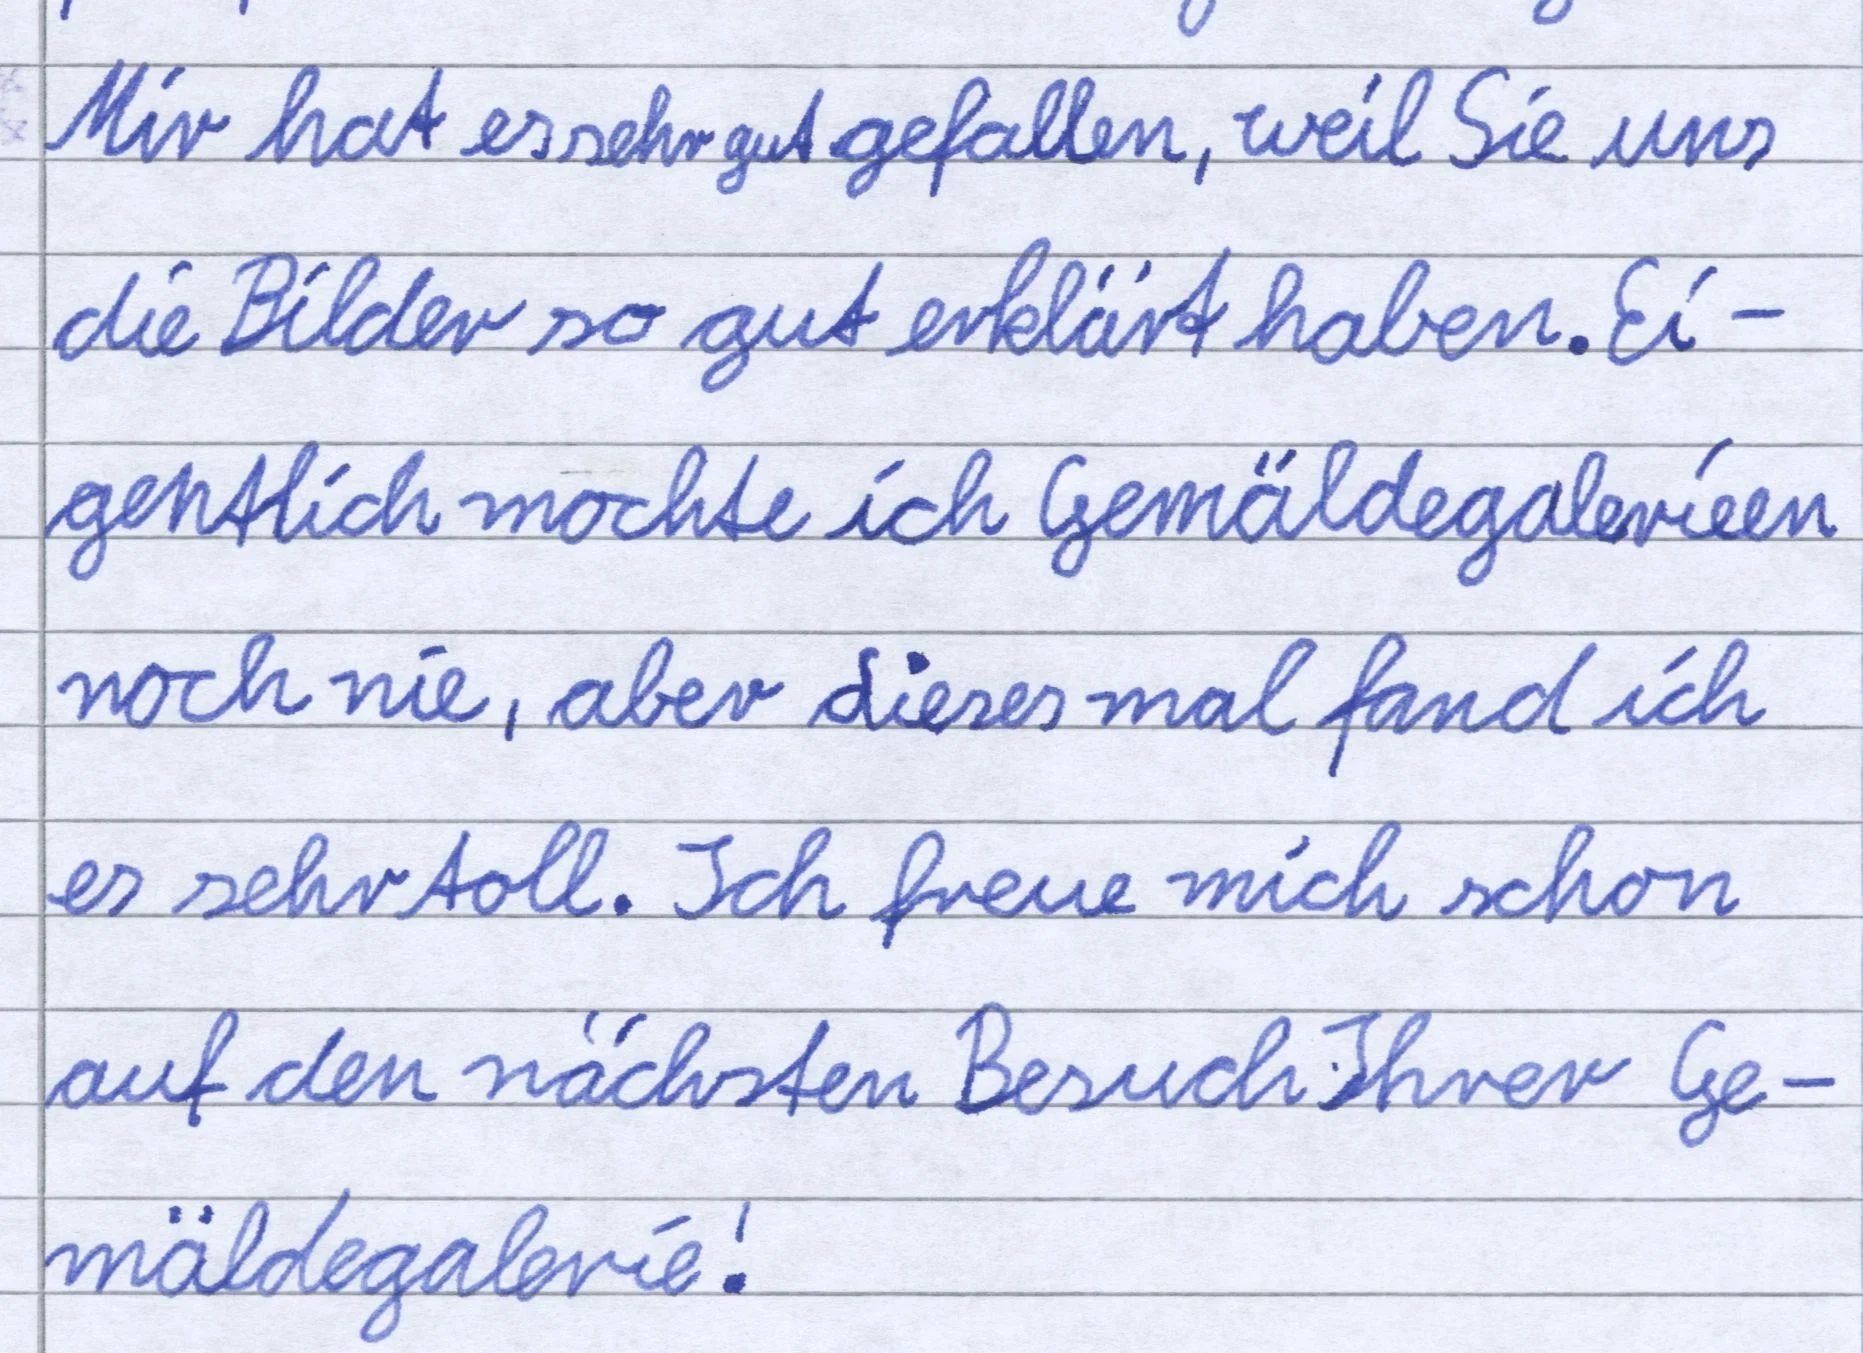 Mir hat es sehr gut gefallen, weil Sie uns
die Bilder so gut erklärt haben. Ei-
gentlich mochte ich Gemäldegalerieen
noch nie, aber dieses mal fand ich
es sehr toll. Ich freue mich schon
auf den nächsten Besuch Ihrer Ge-
mäldegalerie!